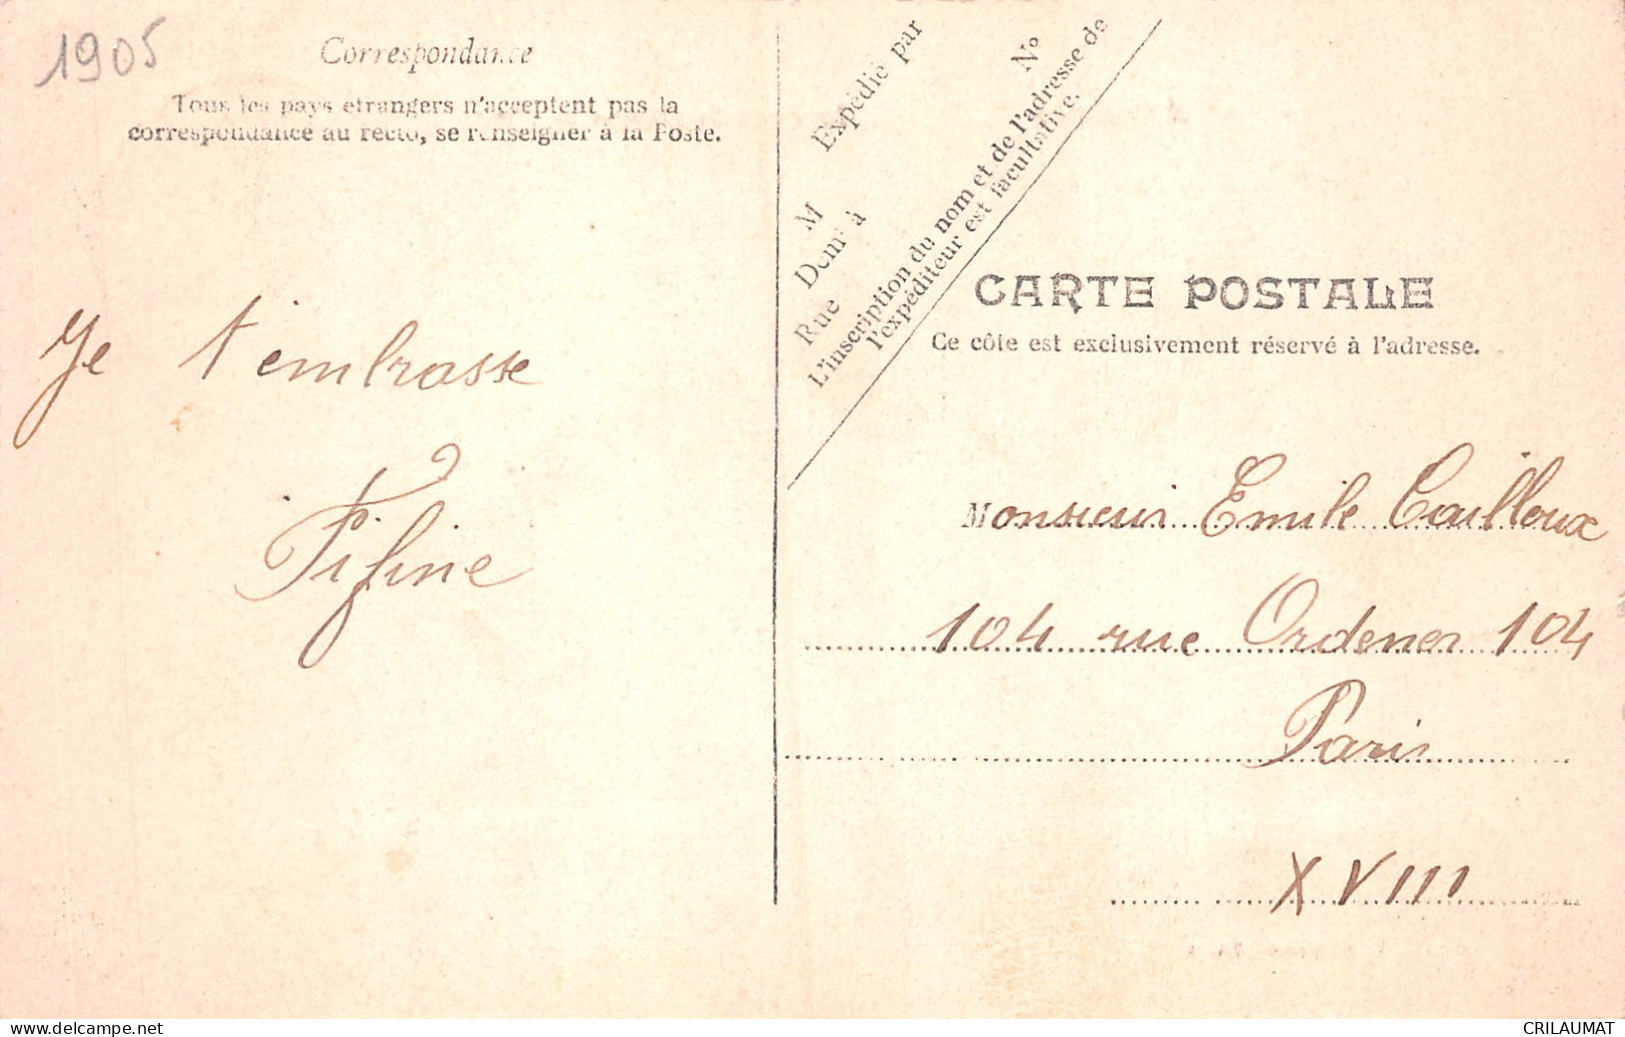 1905
Correspondance
Tous les pays etrangers n'acceptent pas la
correspondance au recto, se renseigner à la Poste.
Je t'embrasse
Fifine
Expédié par
M
Demt à
Rue
N°
L'inscription du nom et de l'adresse de
l'expéditeur est facultative.
CARTE POSTALE
Ce côté est exclusivement réservé à l'adresse.
Monsieur Emile Cailloux
104 rue Ordener 104
Paris
XVIII
www.delcampe.net
CRILAUMAT